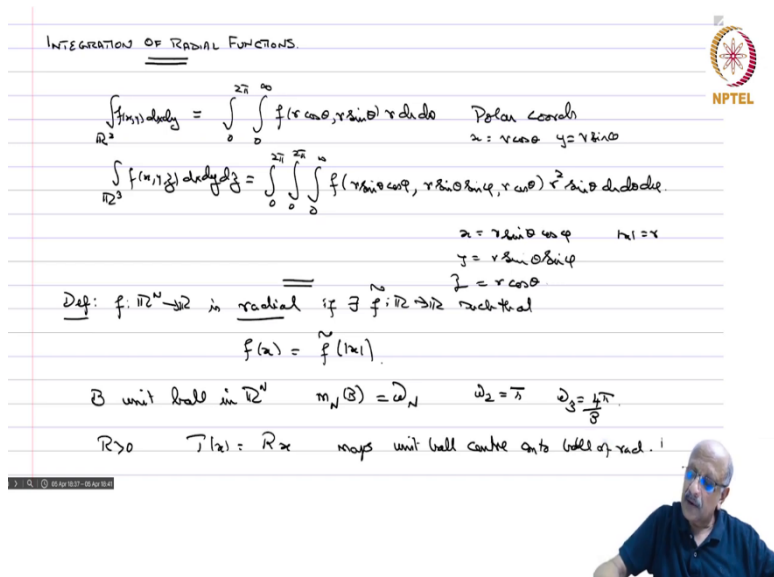 INTEGRATION OF RADIAL FUNCTIONS.
NPTEL
∫_{ℝ²} f(x,y) dxdy = ∫_0^{2π} ∫_0^∞ f(r cosθ, r sinθ) r dr dθ Polar coords
x = r cosθ y = r sinθ
∫_{ℝ³} f(x,y,z) dxdydz = ∫_0^{2π} ∫_0^{2π} ∫_0^∞ f(r sinθ cosφ, r sinθ sinφ, r cosθ) r² sinθ dr dθ dφ.
x = r sinθ cosφ |x| = r
y = r sinθ sinφ
z = r cosθ.
Def: f: ℝᴺ→ℝ is radial if ∃ f̃: ℝ→ℝ such that
f(x) = f̃(|x|).
B unit ball in ℝᴺ m_N(B) = ω_N ω₂ = π ω₃ = 4π/3.
R>0 T(x) = Rx maps unit ball centre onto ball of rad.
05 Apr 18:37 - 05 Apr 18:41